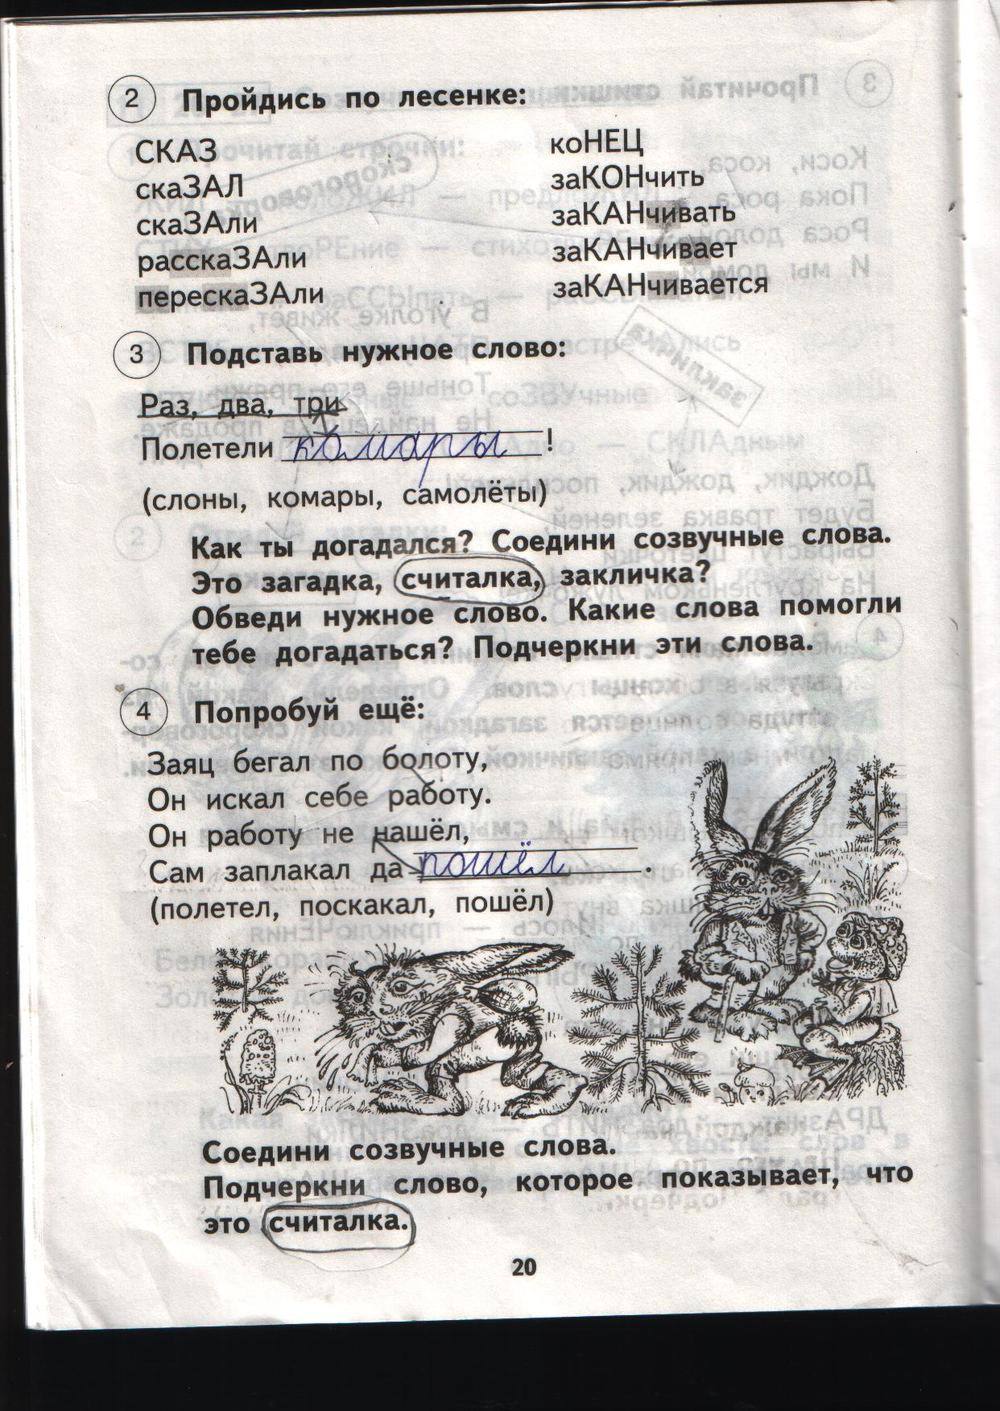 2 Пройдись по лесенке:
СКАЗ
скаЗАЛ
скаЗАли
рассказАли
перескаЗАли
коНЕЦ
заКОНчить
заКАНчивать
заКАНчивает
заКАНчивается
3 Подставь нужное слово:
Раз, два, три
Полетели комары!
(слоны, комары, самолёты)
Как ты догадался? Соедини созвучные слова.
Это загадка, считалка, закличка?
Обведи нужное слово. Какие слова помогли
тебе догадаться? Подчеркни эти слова.
4 Попробуй ещё:
Заяц бегал по болоту,
Он искал себе работу.
Он работу не нашёл,
Сам заплакал да пошёл.
(полетел, поскакал, пошёл)
Соедини созвучные слова.
Подчеркни слово, которое показывает, что
это считалка.
20